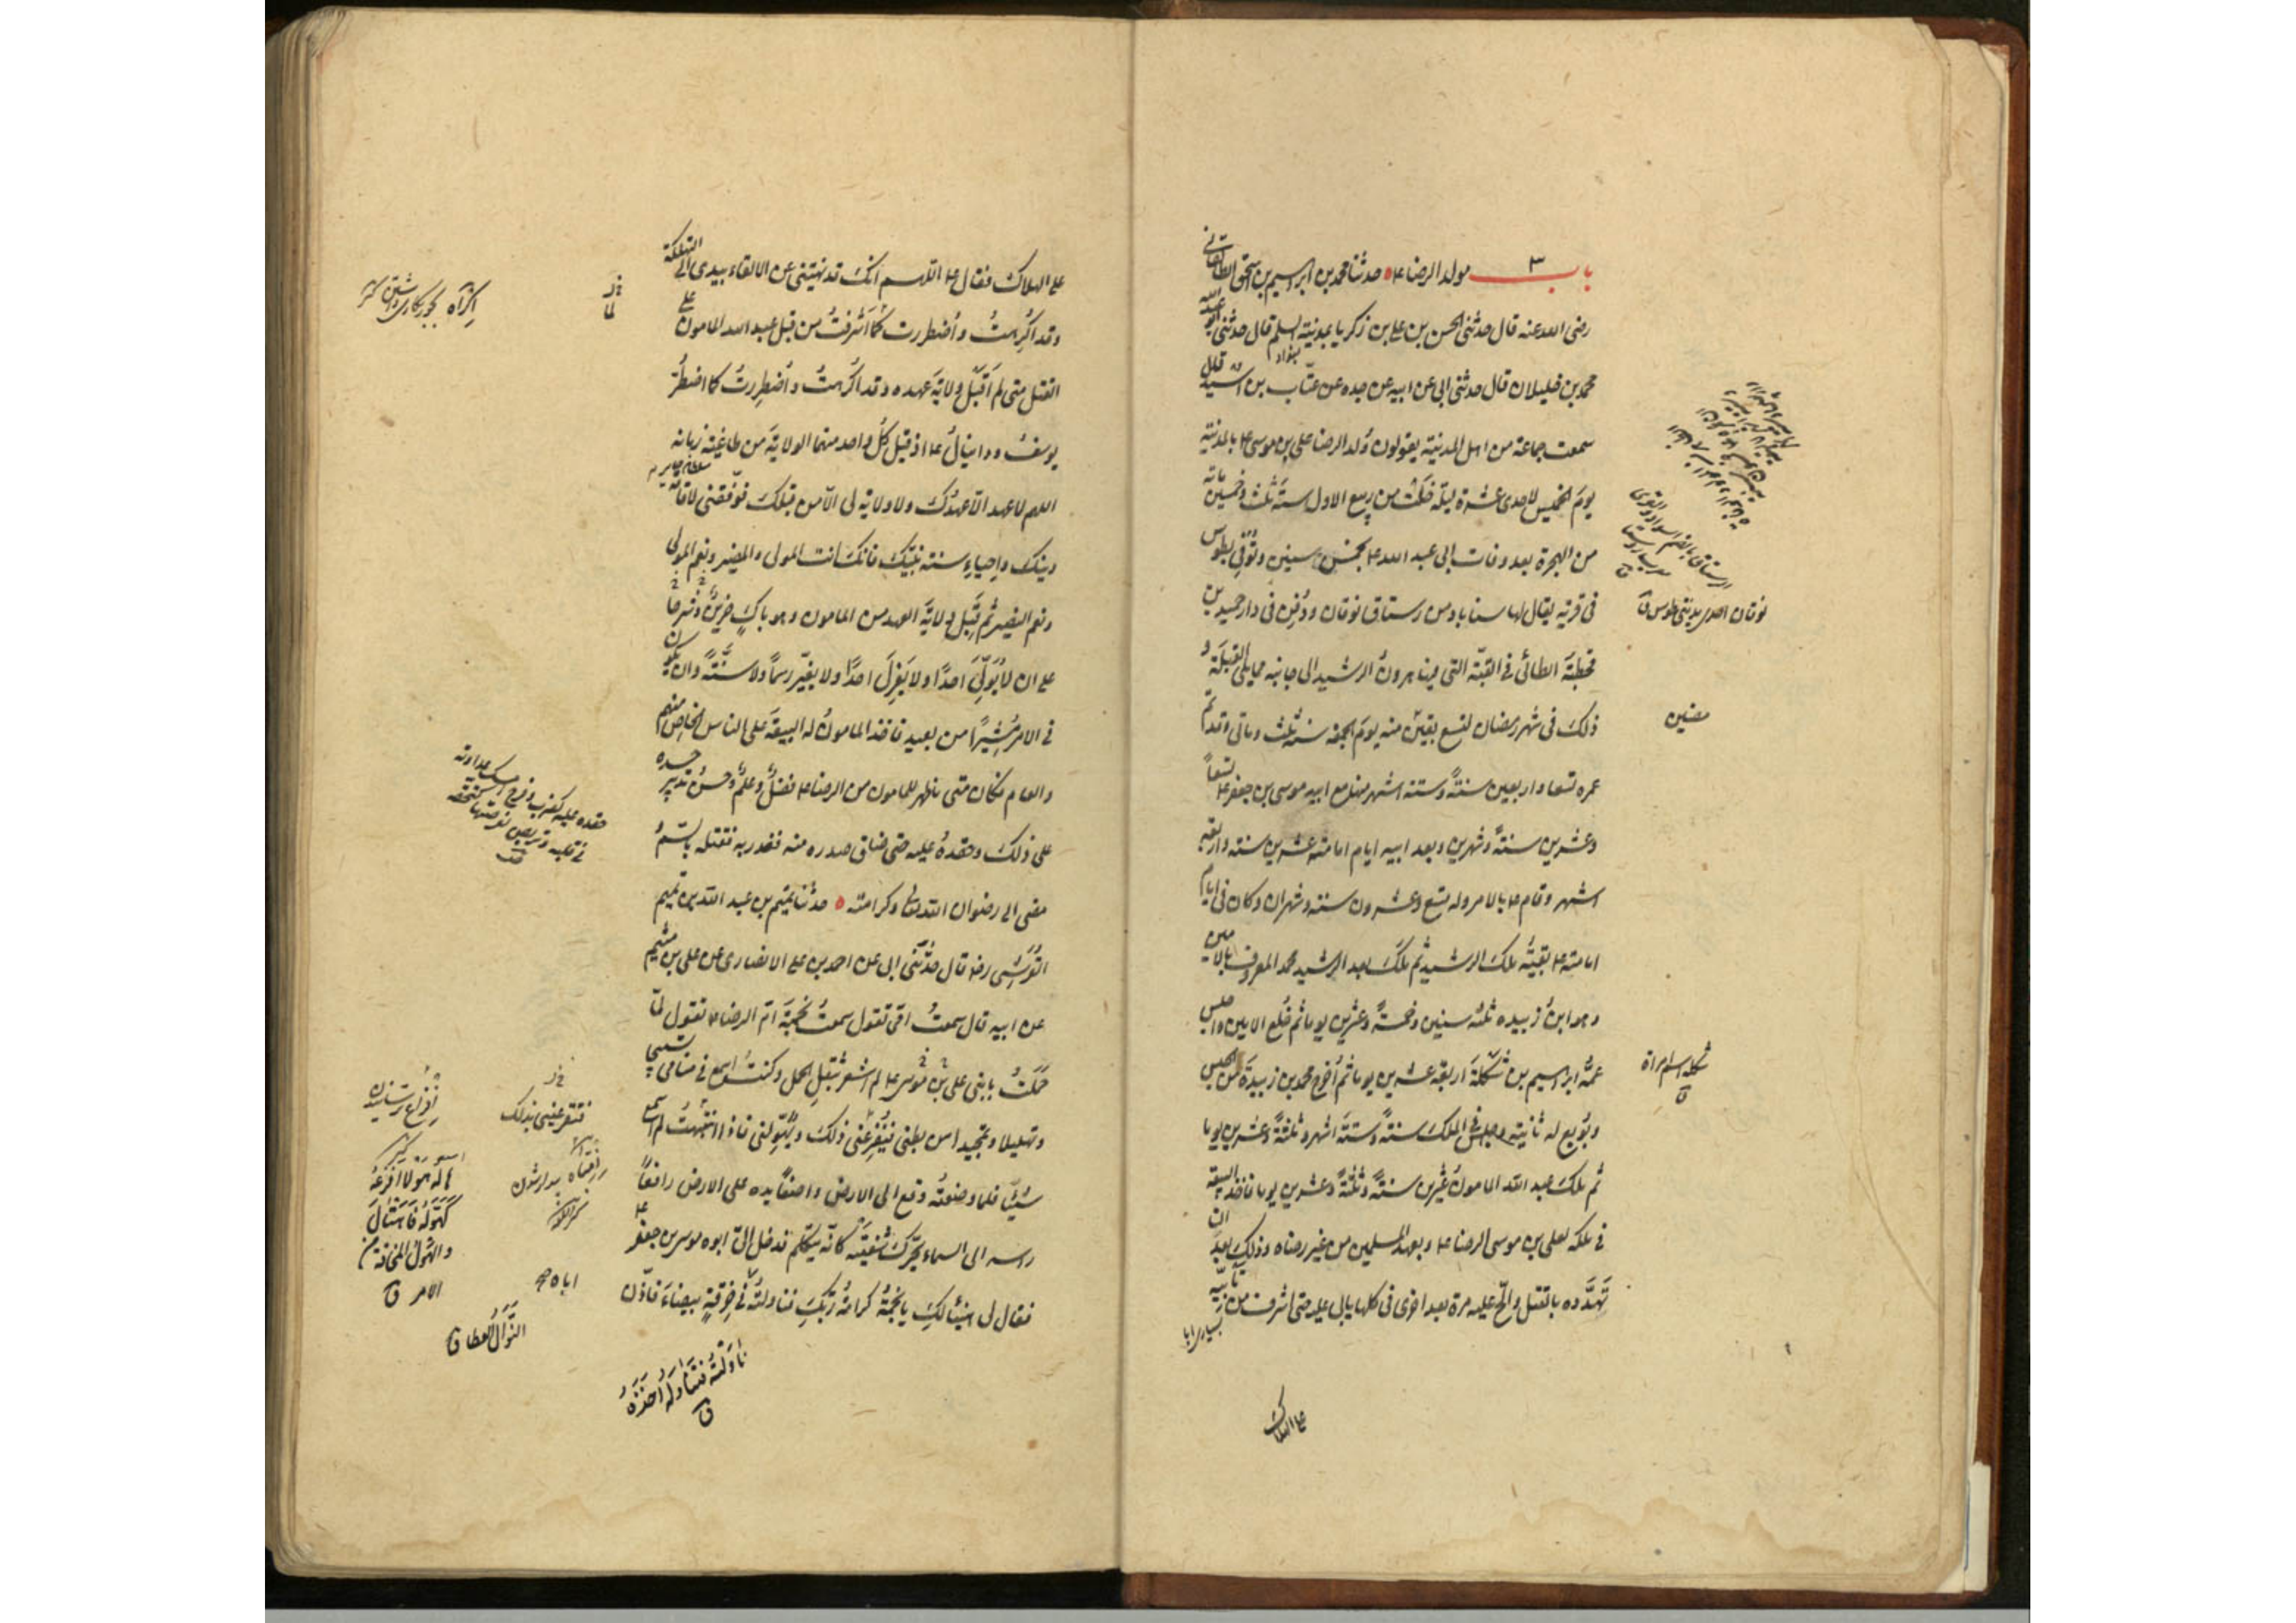 باب ٣ مولد الرضا ع م حدثنا محمد بن ابرهيم بن اسحق الطالقاني
رضى الله عنه قال حدثنى الحسن بن على بن زكريا بمدينة السلم قال حدثنى ابو عبد الله
بغداد
محمد بن خليلان قال حدثنى ابى عن ابيه عن جده عن عتّاب بن اسيد قال
سمعت جماعة من اهل المدينة يقولون وُلد الرضا على بن موسى ع م بالمدينة
يومَ الخميس لاحدى عشرة ليلة خَلَتْ من ربيع الاول سنة ثلث وخمسين مائة
من الهجرة بعد وفات ابى عبد الله ع م بخمس سنين وتُوُفّى بطوس
فى قرية يقال لها سناباد من رستاق نوقان ودُفِن فى دار حميد بن
قحطبة الطائى فى القبّة التى فيها هرونُ الرشيد الى جانبه مما يلى القبلة و
ذلك فى شهر رمضان لتسع بقين منه يومَ الجمعة سنة ثلث وماتى وقد تم
عمره تسعا واربعين سنةً وستة اشهر منها مع ابيه موسى بن جعفر ع م تسعاً
وعشرين سنةً وشهرين وبعد ابيه ايام امامته عشرين سنة واربعة
اشهر وقام ع م بالامر وله تسع وعشرون سنة وشهران وكان فى ايام
امامته ع م بقيّة ملك الرشيد ثم مَلَكَ بعد الرشيد محمد المعروف بالامين
وهو ابنُ زبيده ثلثة سنين وخمسةً وعشرين يوما ثم خُلع الامين واجلس
عمّه ابرهيم بن شكلة اربعة عشر يوما ثم اُخرج محمد بن زبيدة من الحبس
وبُويع له ثانية وجلس فى الملك سنةً وستةَ اشهر وثلثةً وعشرين يوما
ثم ملك عبد الله المامونُ عشرين سنةً وثلثةً وعشرين يوما فاخذ البيعة
فى ملكه لعلى بن موسى الرضا ع م بعهد المسلمين من غير رضاه وذلك بعد ان
تَهَدَّده بالقتل والحّ عليه مرة بعد اخرى فى كلها يابى عليه حتى اشرف من تأبّيه
على الهلاك
نوقان احدى مدينتى طوس ق
شكلة اسم امراة
ق
على الهلاك فقال ع م اللهم انك قد نهيتنى عن الالقاء بيدى الى التهلكة
وقد اُكرِهتُ واُضطررت كما اَشرفتُ من قبل عبد الله المامون على
القتل متى لم اَقبَلْ ولايةَ عهده وقد اُكرهتُ واُضطِررتُ كما اضطُرّ
يوسفُ ودانيالُ ع م اذ قبل كلُّ واحد منهما الولايةَ من طاغية زمانه
اللهم لا عهد الّا عهدُك ولا ولاية لى الّا من قبلك فوَفّقنى لاقامة
دينك واِحياءِ سنة نبيّك فانك انت المولى والنصير ونعم المولى
ونعم النصير ثم قَبِل ولايةَ العهد من المامون وهو باكٍ حزينٌ
على ان لا يُوَلّىَ احدًا ولا يَعزِلَ احدًا ولا يغيّر رسماً ولا سنّةً وان يكون
فى الامر مُشيرًا من بعيد فاخذ المامونُ له البيعةَ على الناس الخاصّ منهم
والعام فكان متى ما ظهر للمامون من الرضا ع م فضلٌ وعلمٌ وحسنُ تدبير حسده
على ذلك وحقده عليه حتى ضاق صدره منه فغدر به فقتله بالسّمّ
مضى الى رضوان الله تعالى وكرامته ه حدثنا تميم بن عبد الله بن تميم
القُرَشى رضه قال حدّثنى ابى عن احمد بن على الانصارى عن على بن ميثم
عن ابيه قال سمعتُ امّى تقول سمعتُ نجمةَ امّ الرضا ع م تقول لمّا
حَمَلتُ بابنى على بن موسى ع م لم اشعر بثقل الحمل وكنتُ اسمع فى منامى تسبيحا
وتهليلا وتمجيدا من بطنى فيُفزِعُنى ذلك ويُهَوّلنى فاذا انتبهتُ لم اسمع
شيئا فلما وضعتُه وقع الى الارض واضعًا يده على الارض رافعاً
راسه الى السماء يحرّك شفتَيه كانّه يتكلّم فدخل الىّ ابوه موسى بن جعفر ع م
فقال لى هنيئا لكِ يا نجمةُ كرامةُ ربّكِ فناولتُه فى خرقةٍ بيضاءَ فاذّن
حقده عليه كضرب وفرح امسك عداوته
فى قلبه وتربص لفرصتها كتحقّده
ق
هاله هولا افزعه
كهَوّله فاهتالَ
والهول المخافة من
الامر ق
اباه
النَّوال العطاء ق
ناولتُه فتناوله اَخَذَه
ق